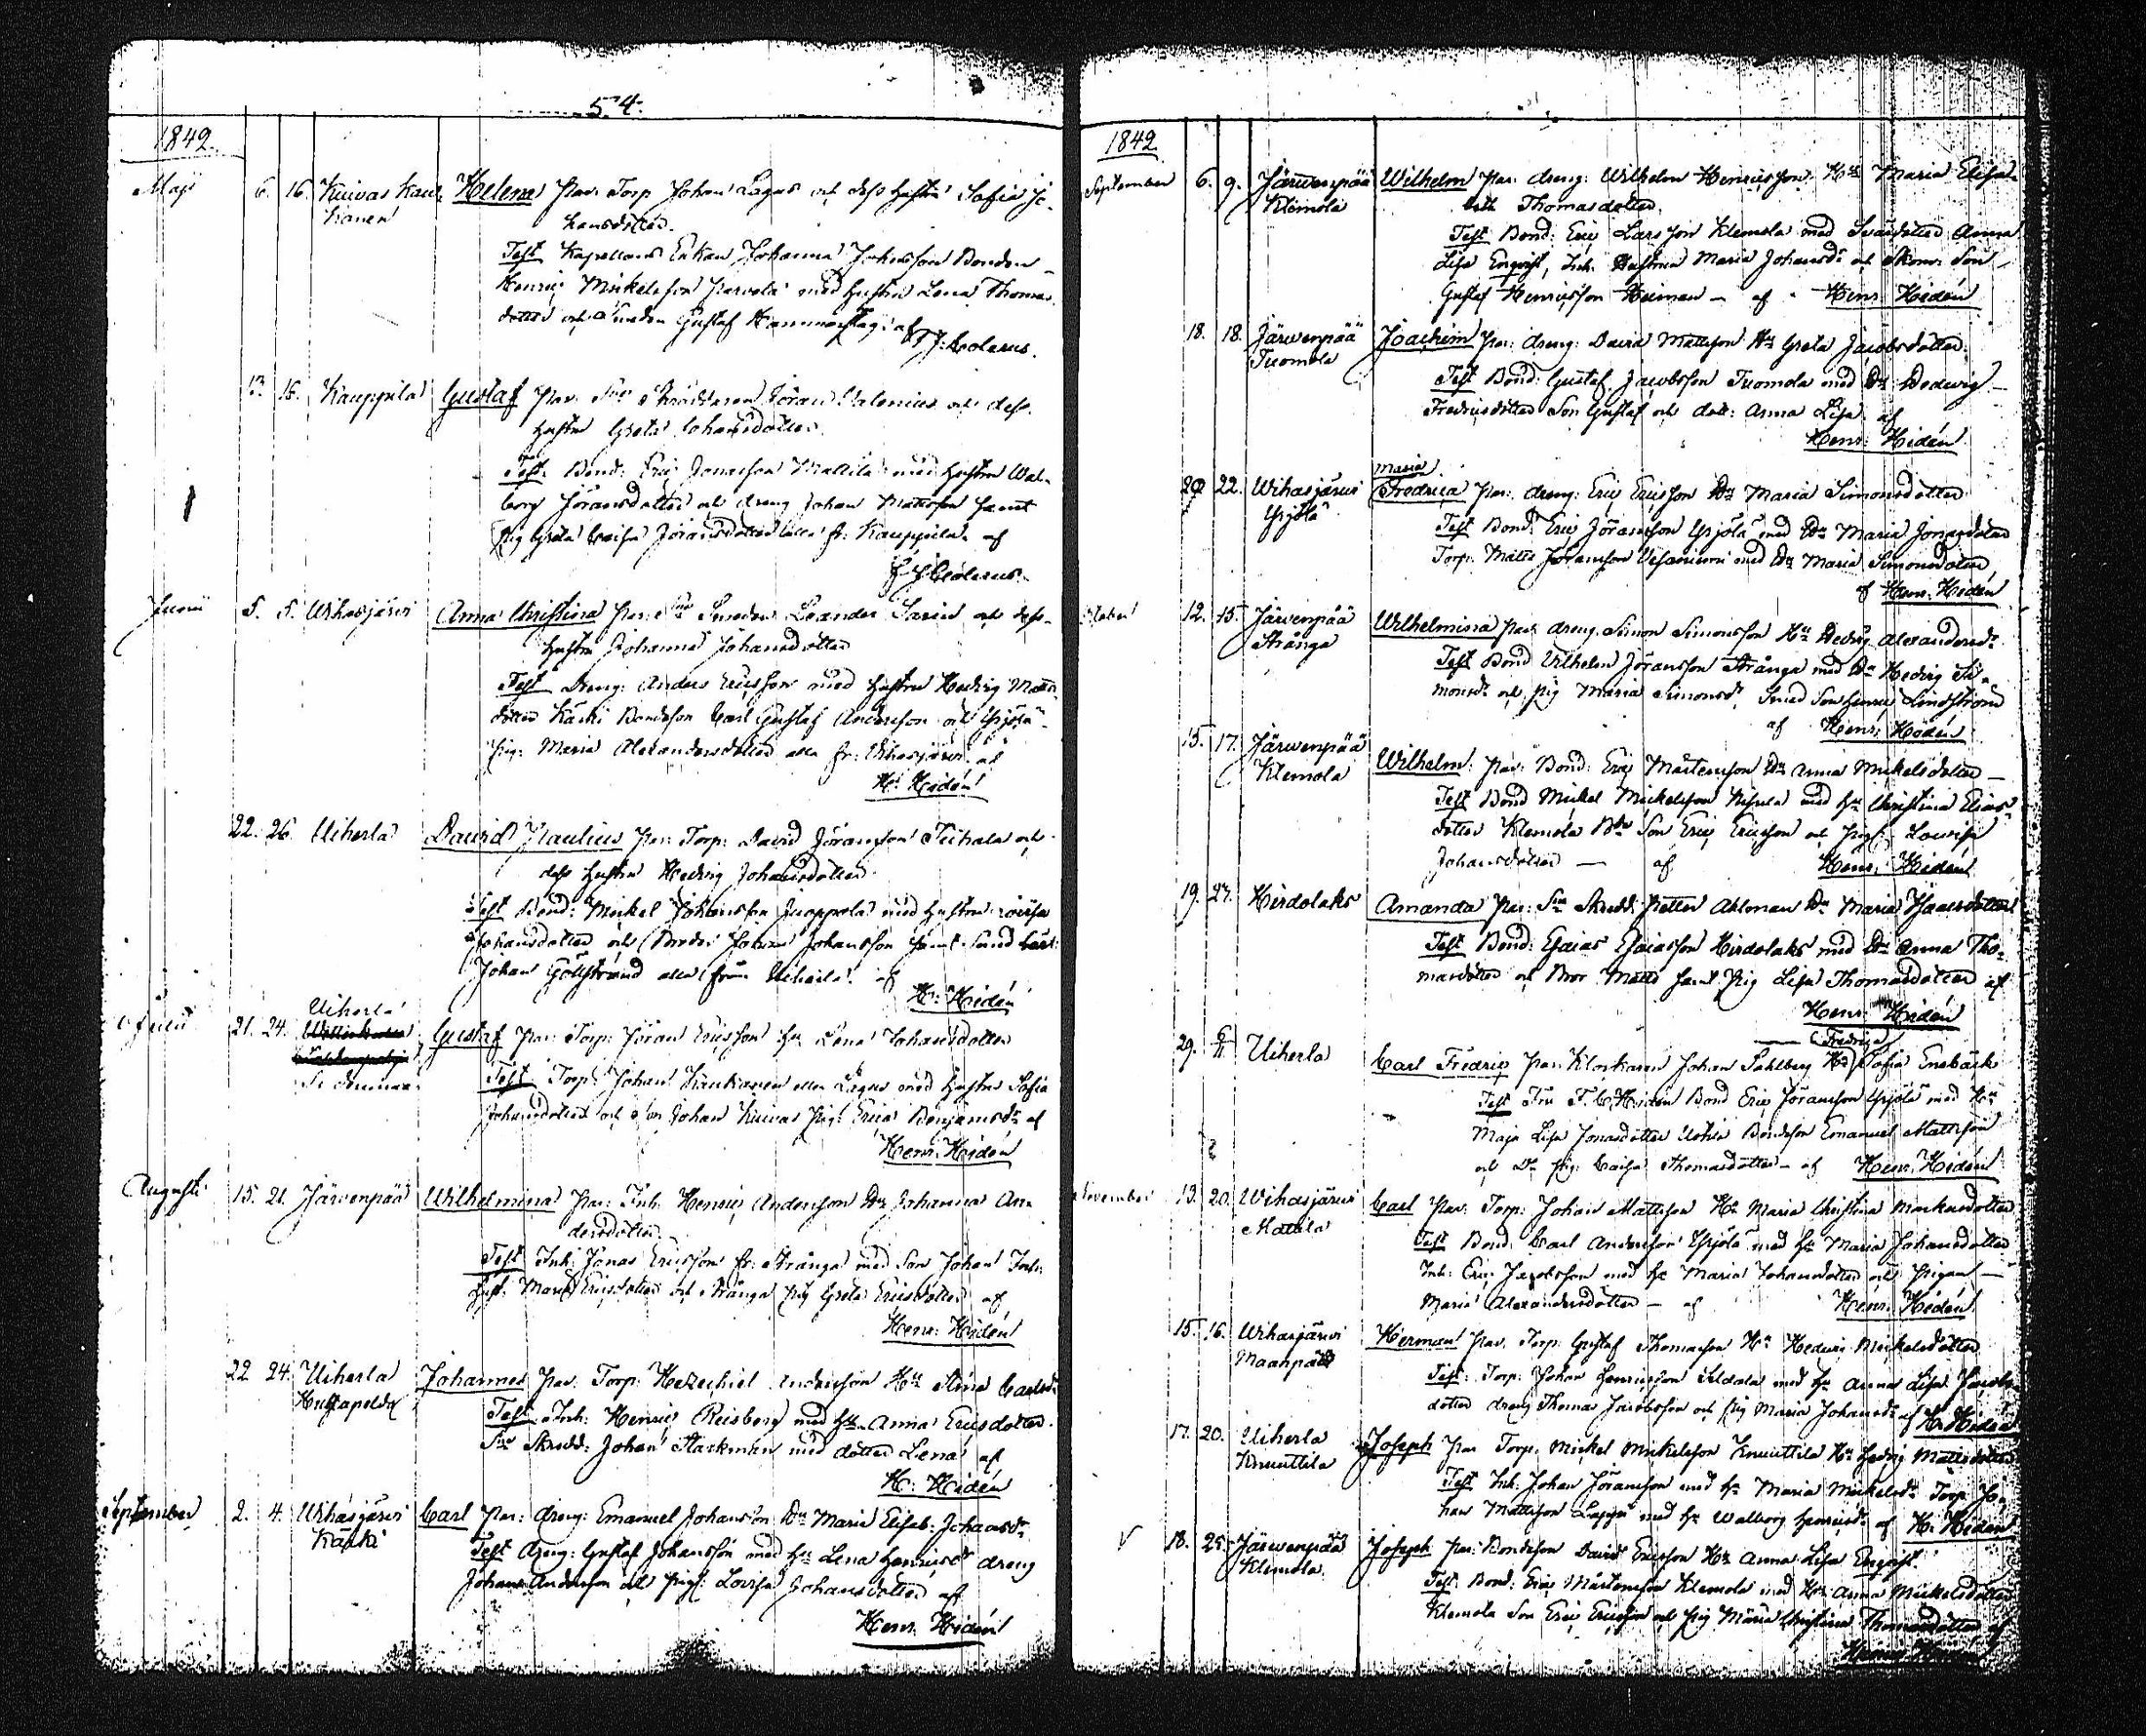 54.
1842.
Maji 6. 16. Kuivas Kau-
kanen Helena par. Torp Johan Lagus och dess hustru Sofia Jo-
hansdotter.
Test Kapellans Enkan Johanna Johansson Bonden
Henric Mickelsson med hustru Lena Thomas
dotter och Gustaf af
13. 16. Kauppila Gustaf par. Jöran och dess
hustru Greta Johansdotter.
Test. Bond: Eric Jonasson Mattila med hustru Wal-
borg Göransdotter och dreng Johan Mattsson samt
pig Greta Göransdotter alla fr: Kauppila af
Junii 5. 5. Wihasjärvi Anna Christina par: Smeden Leander och dess
hustru Johanna Johansdotter
Test Dreng: Anders Ericsson med hustru Hedvig Matts-
dotter Käcki Bondeson Carl Gustaf Andersson och Yrjölä
pig: Maria Alexandersdotter alla fr: Wihasjärvi af
H: Hidén
22. 26. Uiherla David Paulius par: Torp: David Göransson och
dess hustru Hedvig Johansdotter
Test Bond: Mickel Johansson med hustru Lovisa
Johansdotter och Broder Johan Johansson samt
Johan alla från Uiherla af
H: Hidén
Julii 21. 24. Uiherla
Gustaf par: Torp: Jöran Ericsson Hu Lena Johansdotter
Test Torp: Johan Kaukanen eller Lagus med hustru Sofia
Johansdotter och Son Johan Kuivas pig: Erica Benjamsdr af
Henr: Hidén
Augusti 15. 21. Järvenpää Wilhelmina par: Inh: Henric Andersson Hu Johanna An-
dersdotter.
Test Inh: Jonas Ericsson fr: Strånga med Son Johan Inh:
Hust: Maria Ericsdotter och Strånga pig Greta Ericsdotter af
Henr: Hidén
22 24. Uiherla
Johannes par: Torp: Hezechiel Andersson Hu Stina Carlsdr
Test Inh: Henric Reisberg med Hu Anna Ericsdotter.
Skredd: Johan Starkman med dotter Lena af
H: Hidén
September 2. 4. Wihasjärvi
Käcki Carl par: dreng: Emanuel Johansson Hu Maria Elisab: Johansdr
Test dreng: Gustaf Johansson med Hu Lena Henricsdr dreng
Johan Andersson och pig: Lovisa Johansdotter af
Henr. Hidén
1842.
September 6. 9. Järwenpää
Klemola Wilhelm par: dreng: Wilhelm Henricsson Hu Maria Elisa-
beth Thomasdotter.
Test Bond: Eric Larsson Klemola med Anna
Lisa Enqvist, Inh: Hustrun Maria Johansdr och Skom: Son
Gustaf Henricsson Heiman – af Henr: Hidén
18. 18. Järwenpää
Tuomola Joachim par: dreng: David Mattsson Hu Greta Jacobsdotter.
Test Bond: Gustaf Jacobsson Tuomola med Hu Hedwig
Fredricsdotter Son Gustaf och dott: Anna Lisa af
Henr: Hidén
20 22. Wihasjärwi
Yrjölä Maria
Fredrica par: dreng: Eric Ericsson Hu Maria Simonsdotter
Test Bond: Eric Jöransson Yrjölä med Hu Maria Jonasdotter
Torp: Matts Jöransson med Hu Maria Simonsdotter
af Henr: Hidén
October 12. 15. Järvenpää
Strånga Wilhelmina par: dreng Simon Simonsson Hu Hedvig Alexandersdr
Test Bond Vilhelm Jöransson Strånga med Hu Hedvig Si-
monsdr och pig Maria Simonsdr Smed Son Henric Lindström
af Henr: Hidén
15. 17. Järwenpää
Klemola Wilhelm par: Bond: Eric Mårtensson Hu Anna Mickelsdotter –
Test Bond Mickel Mickelsson med Hu Christina Elias-
dotter Klemola Bde Son Eric Ericsson och pig: Lowisa
Johansdotter – af Henr: Hidén
19. 27. Hirdolaks Amanda par: Skredd: Petter Ahlman Hu Maria
Test Bond: Esaias Esaiasson Hirdolaks med Hu Anna Tho-
masdotter och Bror Matts samt pig Lisa Thomasdotter af
Henr: Hidén
29. Uiherla Carl Fredric par: Klockaren Johan Hu Fredrica Sofia Enebäck
Test Fru Hidén Bond Eric Jöransson Yrjölä med Hu
Maja Lisa Jonasdotter Bondeson Emanuel Mattsson
och Dr pig: Caisa Thomasdotter – af Henr: Hidén
November 13. 20. Wihasjärwi
Mattila Carl par: Torp: Johan Mattsson Hu Maria Christina
Test Bond: Carl Andersson Yrjölä med Hu Maria Johansdotter
Inh: Eric Jacobsson med Hu Maria Johansdotter och pigan
Maria Alexandersdotter – af Henr: Hidén
15. 16. Wihasjärwi
Maanpää Herman par. Torp: Gustaf Thomasson Hu Hedwig Mickelsdotter
Test: Torp: Johan Henricsson med Hu Anna Lisa Jacobs-
dotter dreng Thomas Jacobsson och pig Maria Johansdr af H: Hidén
17. 20. Uiherla
Knuuttila Joseph par Torp. Mickel Mickelsson Knuuttila Hu Hedvig Mattsdotter
Test Inh: Johan Jöransson med Hu Maria Mickelsdr Torp: Jo-
han Mattsson med Hu Walborg Henricsdr af H: Hidén
18. 25. Järwenpää
Klemola Joseph par: Bondeson David Ericsson Hu Anna Lisa Enqvist.
Test: Bond: Eric Mårtensson Klemola med Hu Anna Mickelsdotter
Klemola Son Eric Ericsson och pig Maria Christina Thomasdotter af